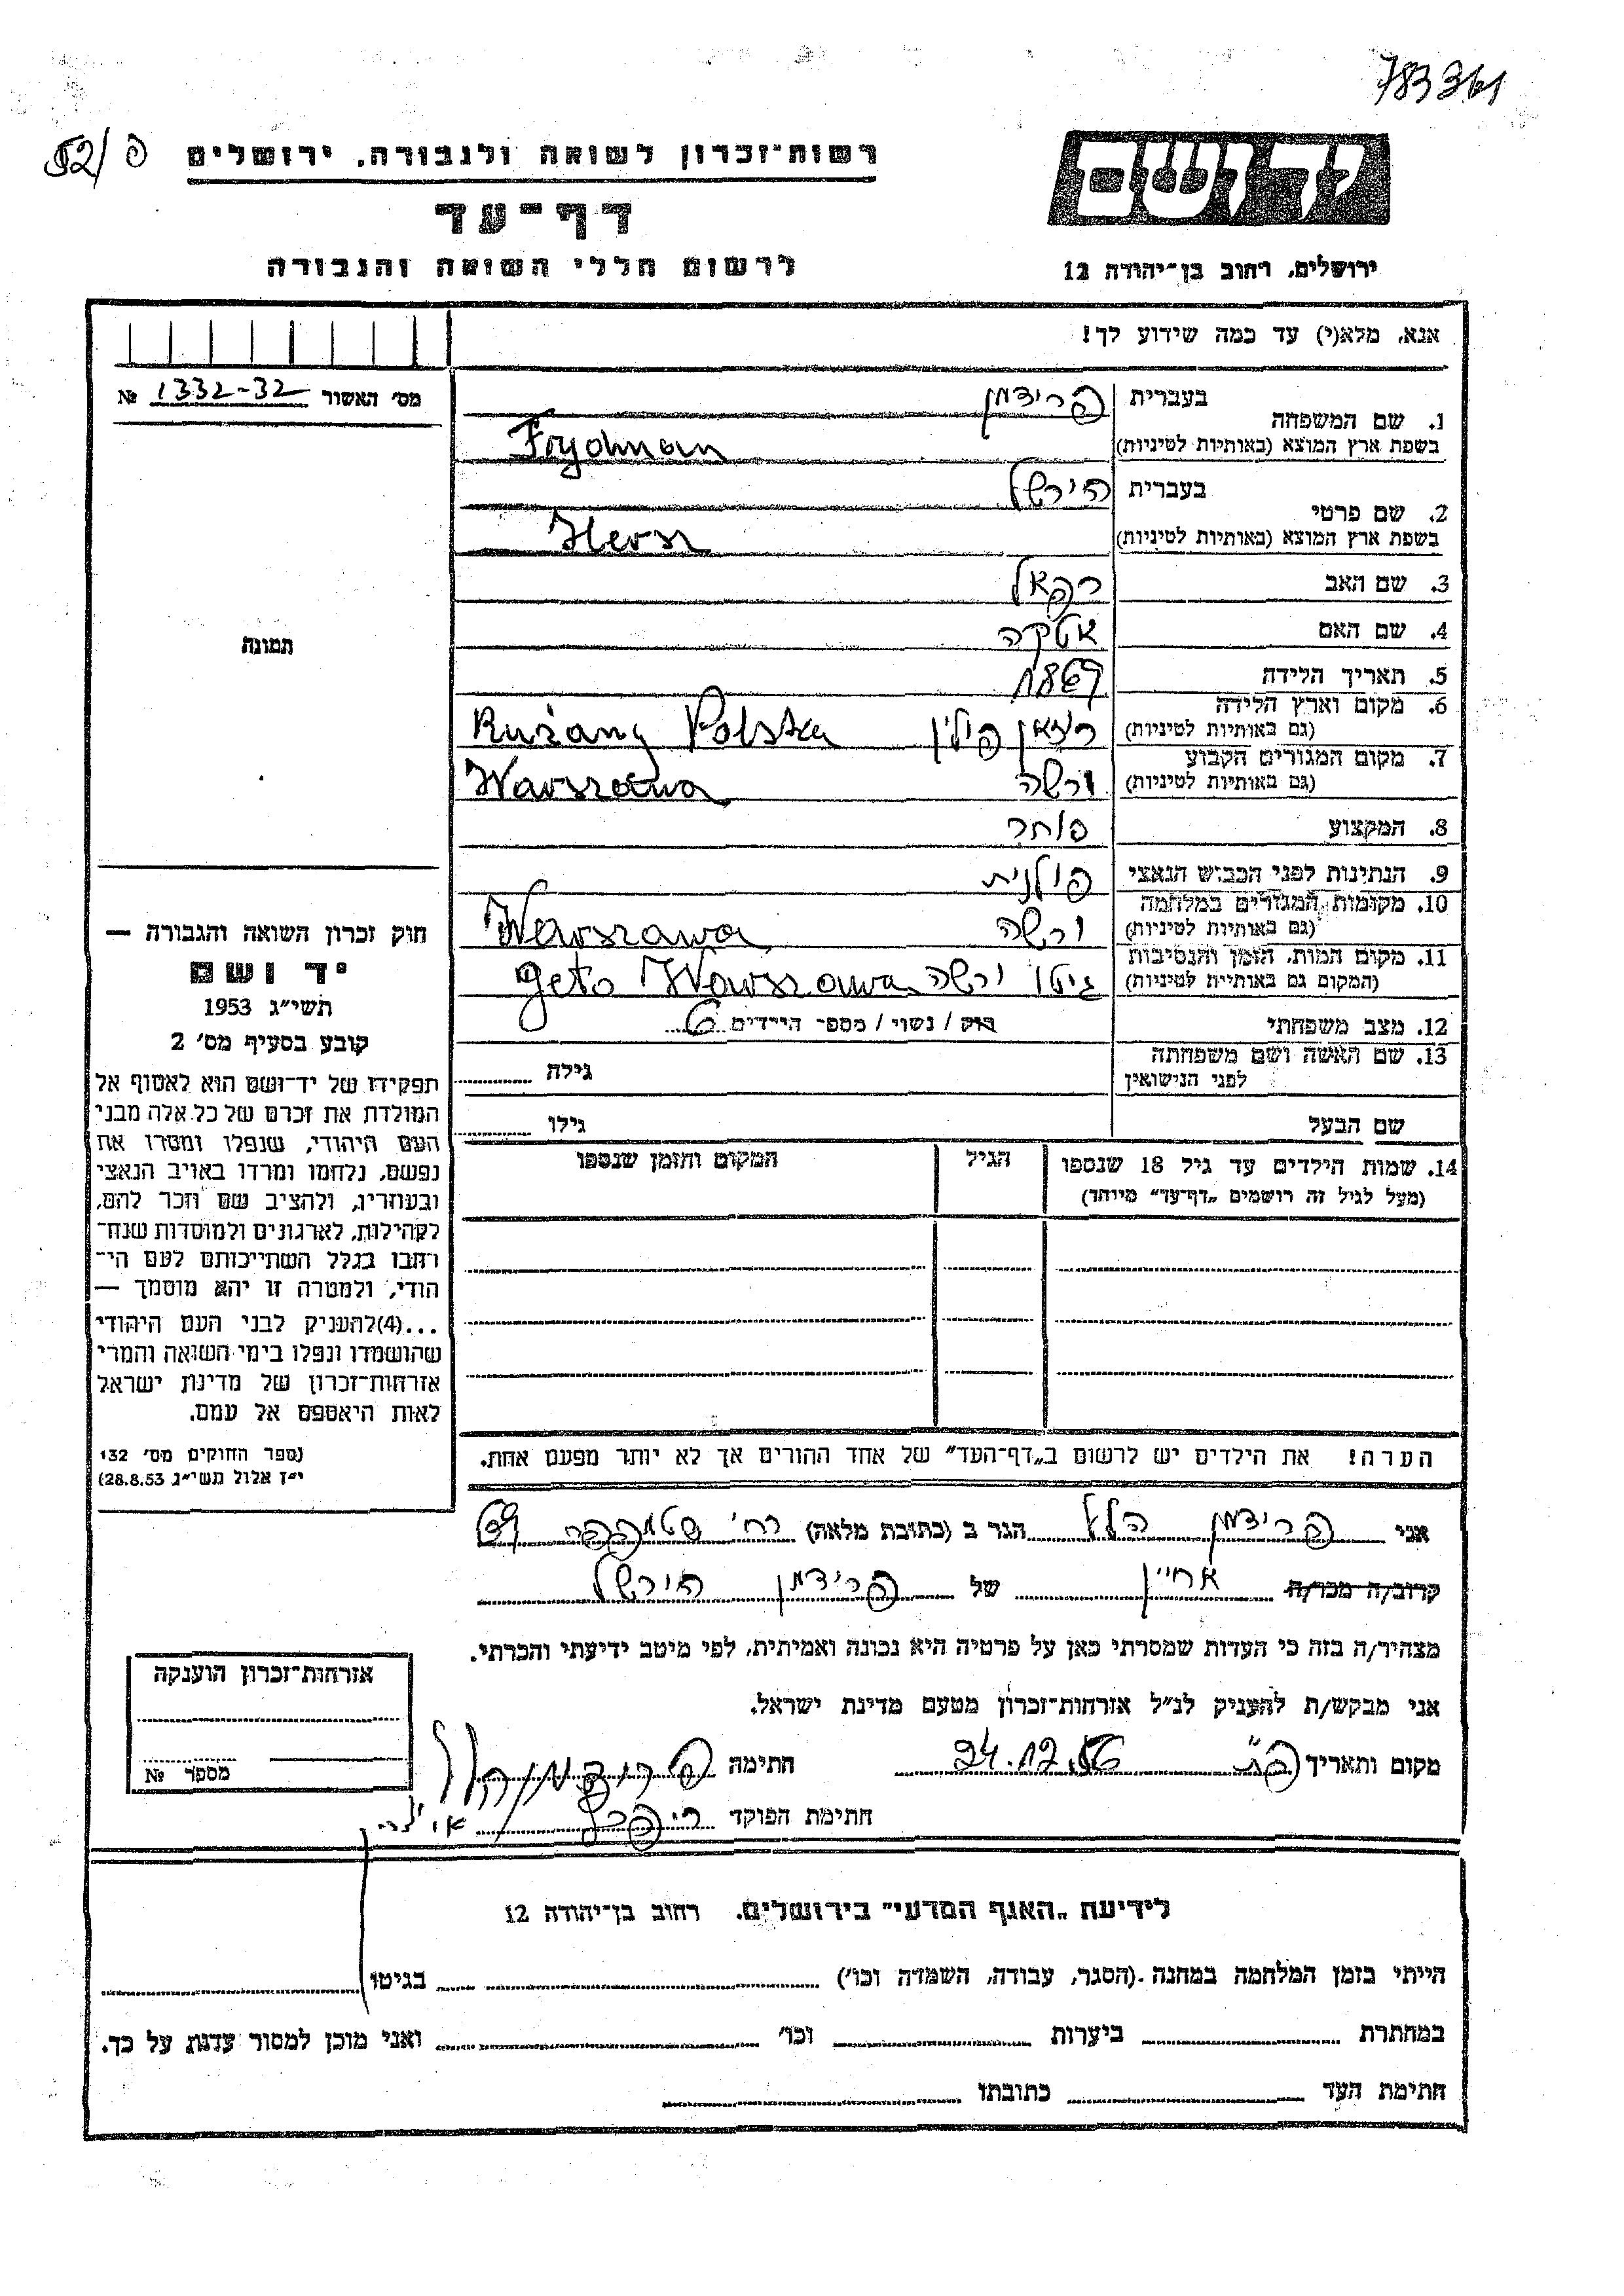 783361
52/פ
רשות־זכרון לשואה ולגבורה, ירושלים
יד ושם
דף־עד
לרשום חללי השואה והגבורה
ירושלים, רחוב בן־יהודה 12
אנא, מלא(י) עד כמה שידוע לך!
מס' האשור 1332-32 №
תמונה
1. שם המשפחה בעברית פרידמן
בשפת ארץ המוצא (באותיות לטיניות) Frydman
2. שם פרטי בעברית הירשל
בשפת ארץ המוצא (באותיות לטיניות) Hersz
3. שם האב רפאל
4. שם האם אטקה
5. תאריך הלידה 1867
6. מקום וארץ הלידה
(גם באותיות לטיניות) רוזאן פולין Rużany Polska
7. מקום המגורים הקבוע
(גם באותיות לטיניות) ורשה Warszawa
8. המקצוע סוחר
9. הנתינות לפני הכבוש הנאצי פולנית
10. מקומות המגורים במלחמה
(גם באותיות לטיניות) ורשה Warszawa
11. מקום המות, הזמן והנסיבות
(המקום גם באותיות לטיניות) גיטו ורשה geto Warszawa
12. מצב משפחתי רוק / נשוי / מספר הילדים 6
13. שם האשה ושם משפחתה
לפני הנישואין גילה
שם הבעל גילו
14. שמות הילדים עד גיל 18 שנספו הגיל המקום והזמן שנספו
(מעל לגיל זה רושמים „דף־עד" מיוחד)
הערה! את הילדים יש לרשום ב„דף־העד" של אחד ההורים אך לא יותר מפעם אחת.
חוק זכרון השואה והגבורה —
יד ושם
תשי״ג 1953
קובע בסעיף מס' 2
תפקידו של יד־ושם הוא לאסוף אל
המולדת את זכרם של כל אלה מבני
העם היהודי, שנפלו ומסרו את
נפשם, נלחמו ומרדו באויב הנאצי
ובעוזריו, ולהציב שם וזכר להם,
לקהילות, לארגונים ולמוסדות שנח־
רבו בגלל השתייכותם לעם הי־
הודי, ולמטרה זו יהא מוסמך —
...(4)להעניק לבני העם היהודי
שהושמדו ונפלו בימי השואה והמרי
אזרחות־זכרון של מדינת ישראל
לאות היאספם אל עמם.
(ספר החוקים מס' 132
י״ז אלול תשי״ג 28.8.53)
אני פרידמן הלל הגר ב (כתובת מלאה) רח'
קרוב/ה מכר/ה אחיין של פרידמן הירשל
מצהיר/ה בזה כי העדות שמסרתי כאן על פרטיה היא נכונה ואמיתית, לפי מיטב ידיעתי והכרתי.
אני מבקש/ת להעניק לנ״ל אזרחות־זכרון מטעם מדינת ישראל.
מקום ותאריך פ״ת 24.12.56 חתימה פרידמן הלל
חתימת הפוקד
אזרחות־זכרון הוענקה
מספר №
לידיעת „האגף המדעי" בירושלים, רחוב בן־יהודה 12
הייתי בזמן המלחמה במחנה (הסגר, עבודה, השמדה וכו') בגיטו
במחתרת ביערות וכו' ואני מוכן למסור עדות על כך.
חתימת העד כתובתו